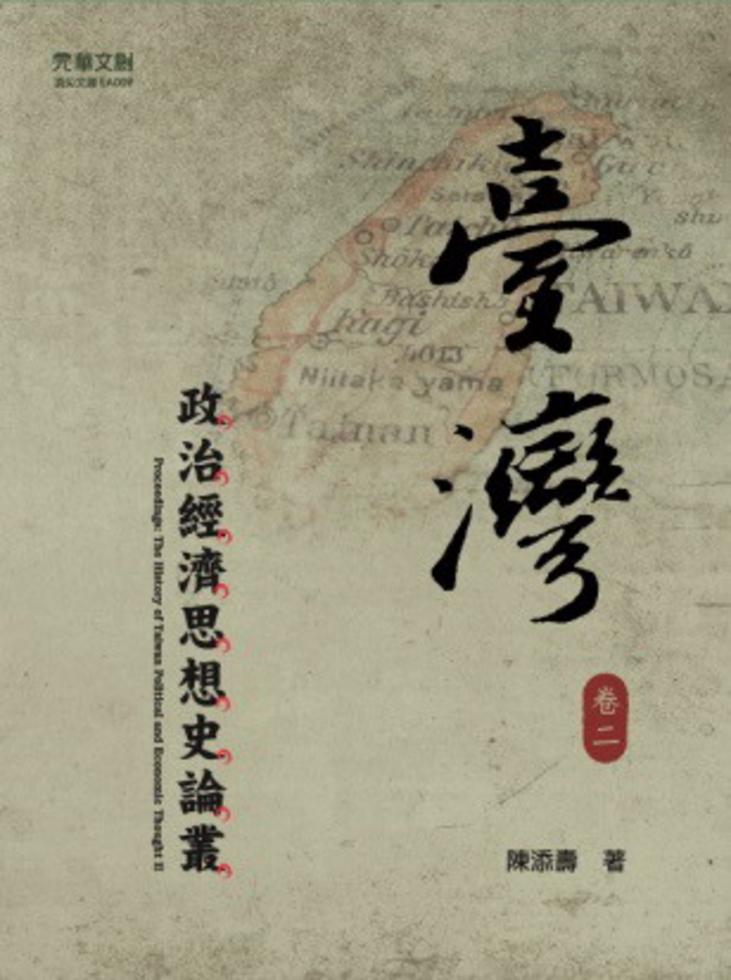 元華文創
頂尖文庫 EA009
臺灣
政治經濟思想史論叢
Proceedings: The History of Taiwan Political and Economic Thought II
卷二
陳添壽 著
TAIWAN
FORMOSA
Kagi
Niitaka yama
Tainan